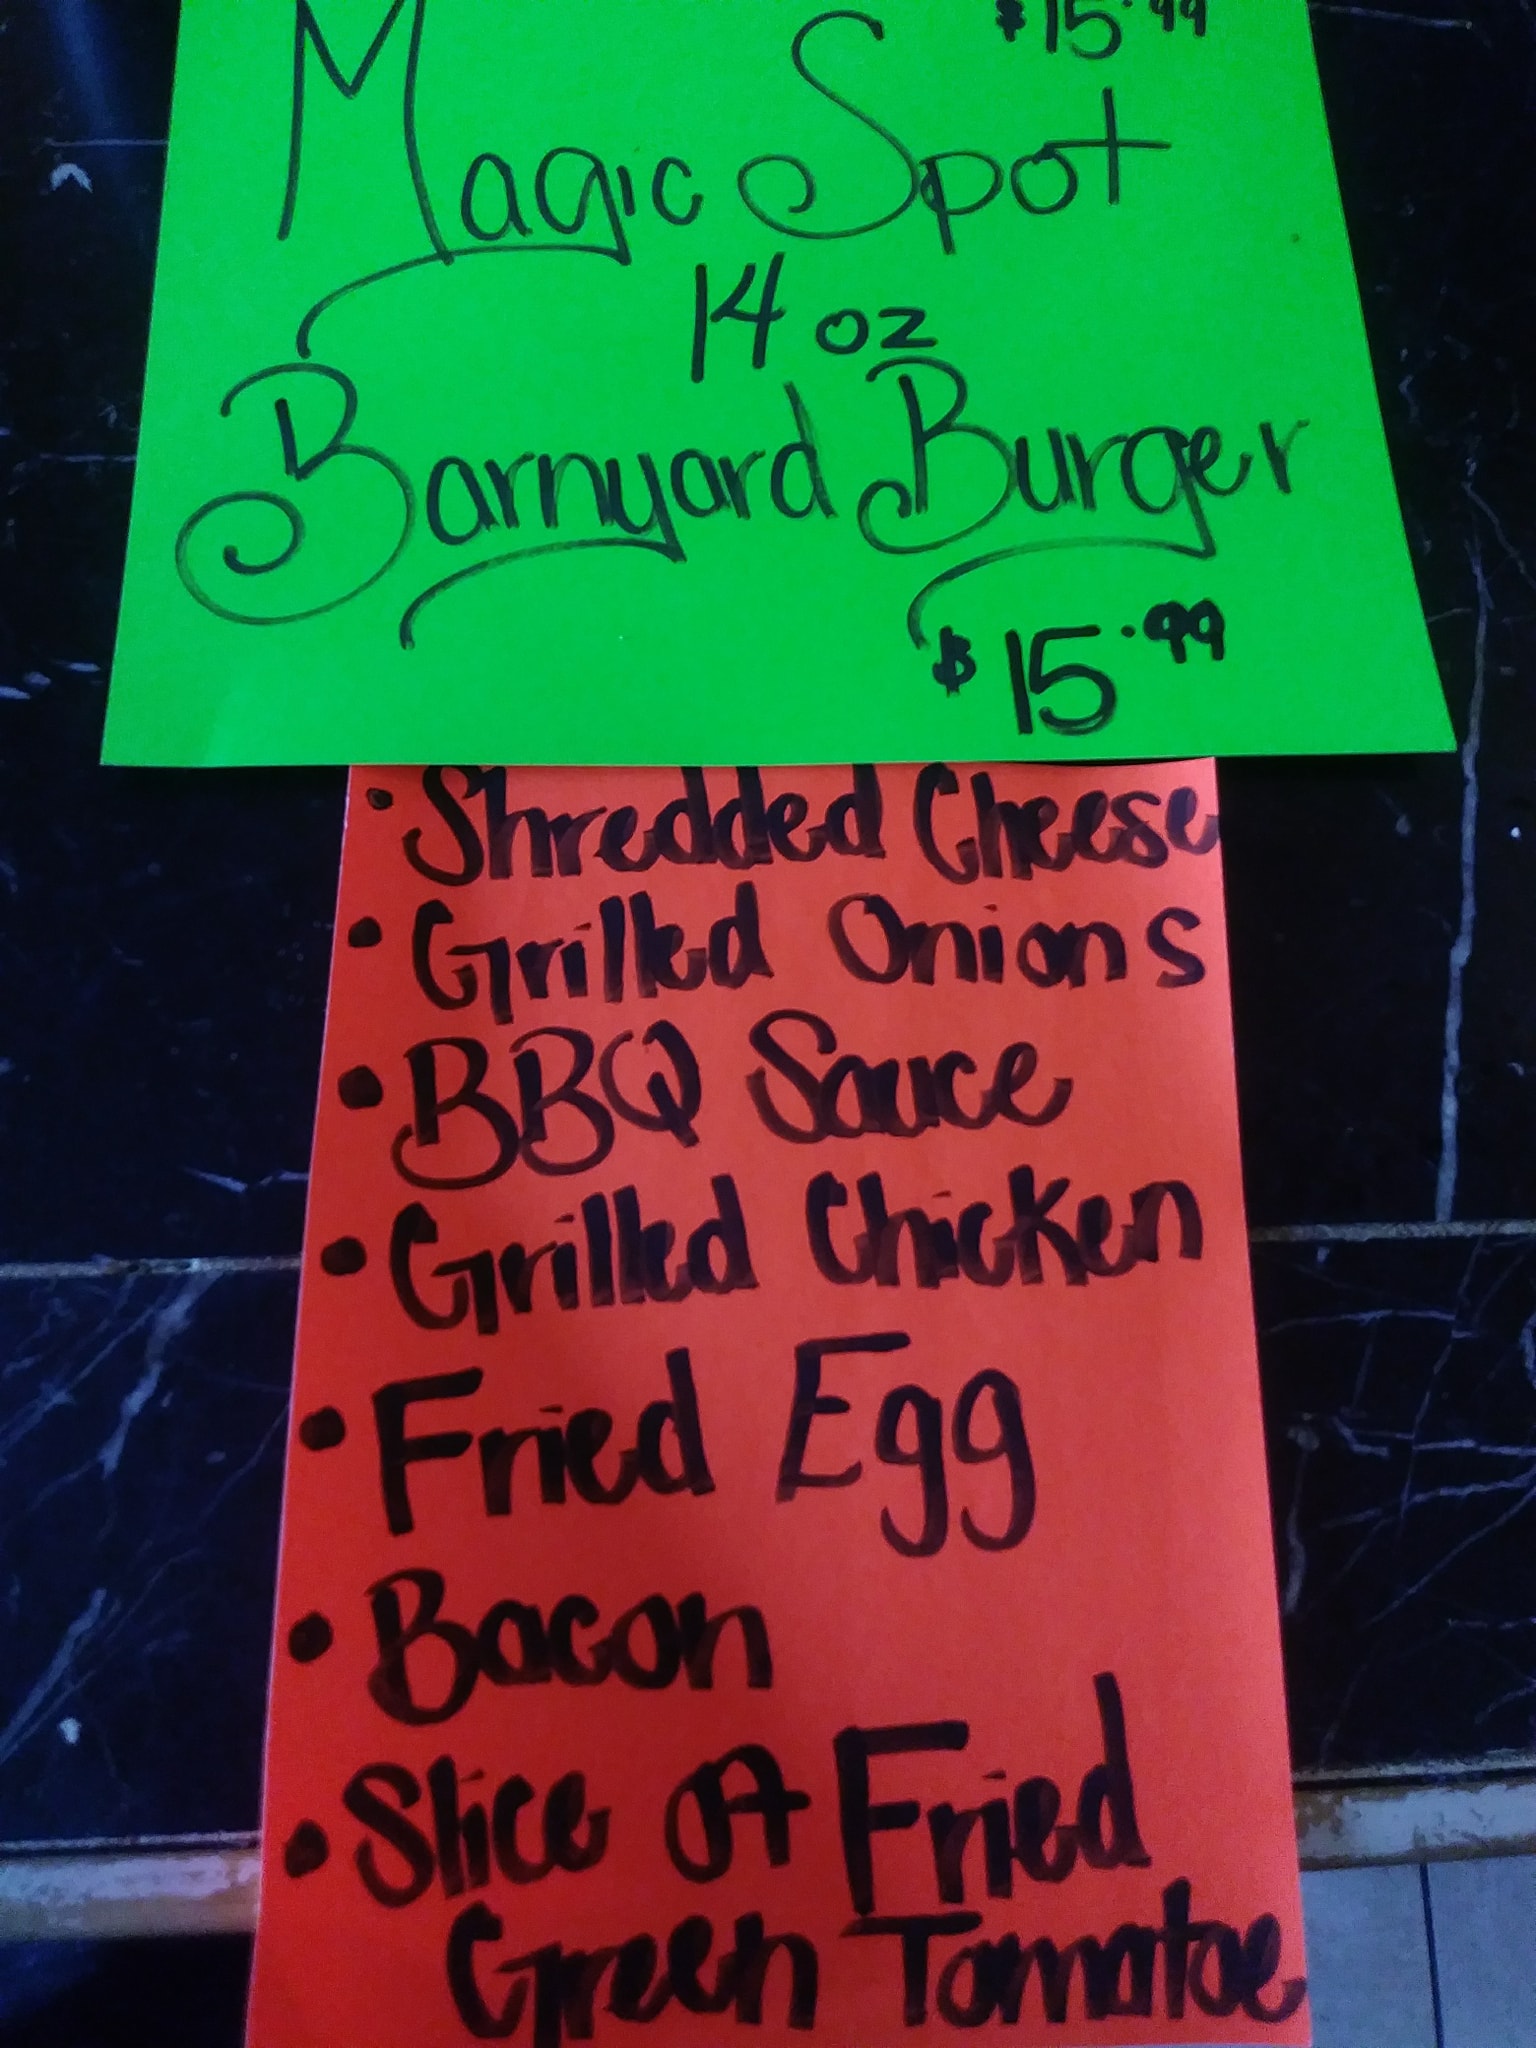 $15.99
Magic Spot
14 oz
Barnyard Burger
$15.99
• Shredded Cheese
• Grilled Onions
• BBQ Sauce
• Grilled Chicken
• Fried Egg
• Bacon
• Slice of Fried
Green Tomatoe